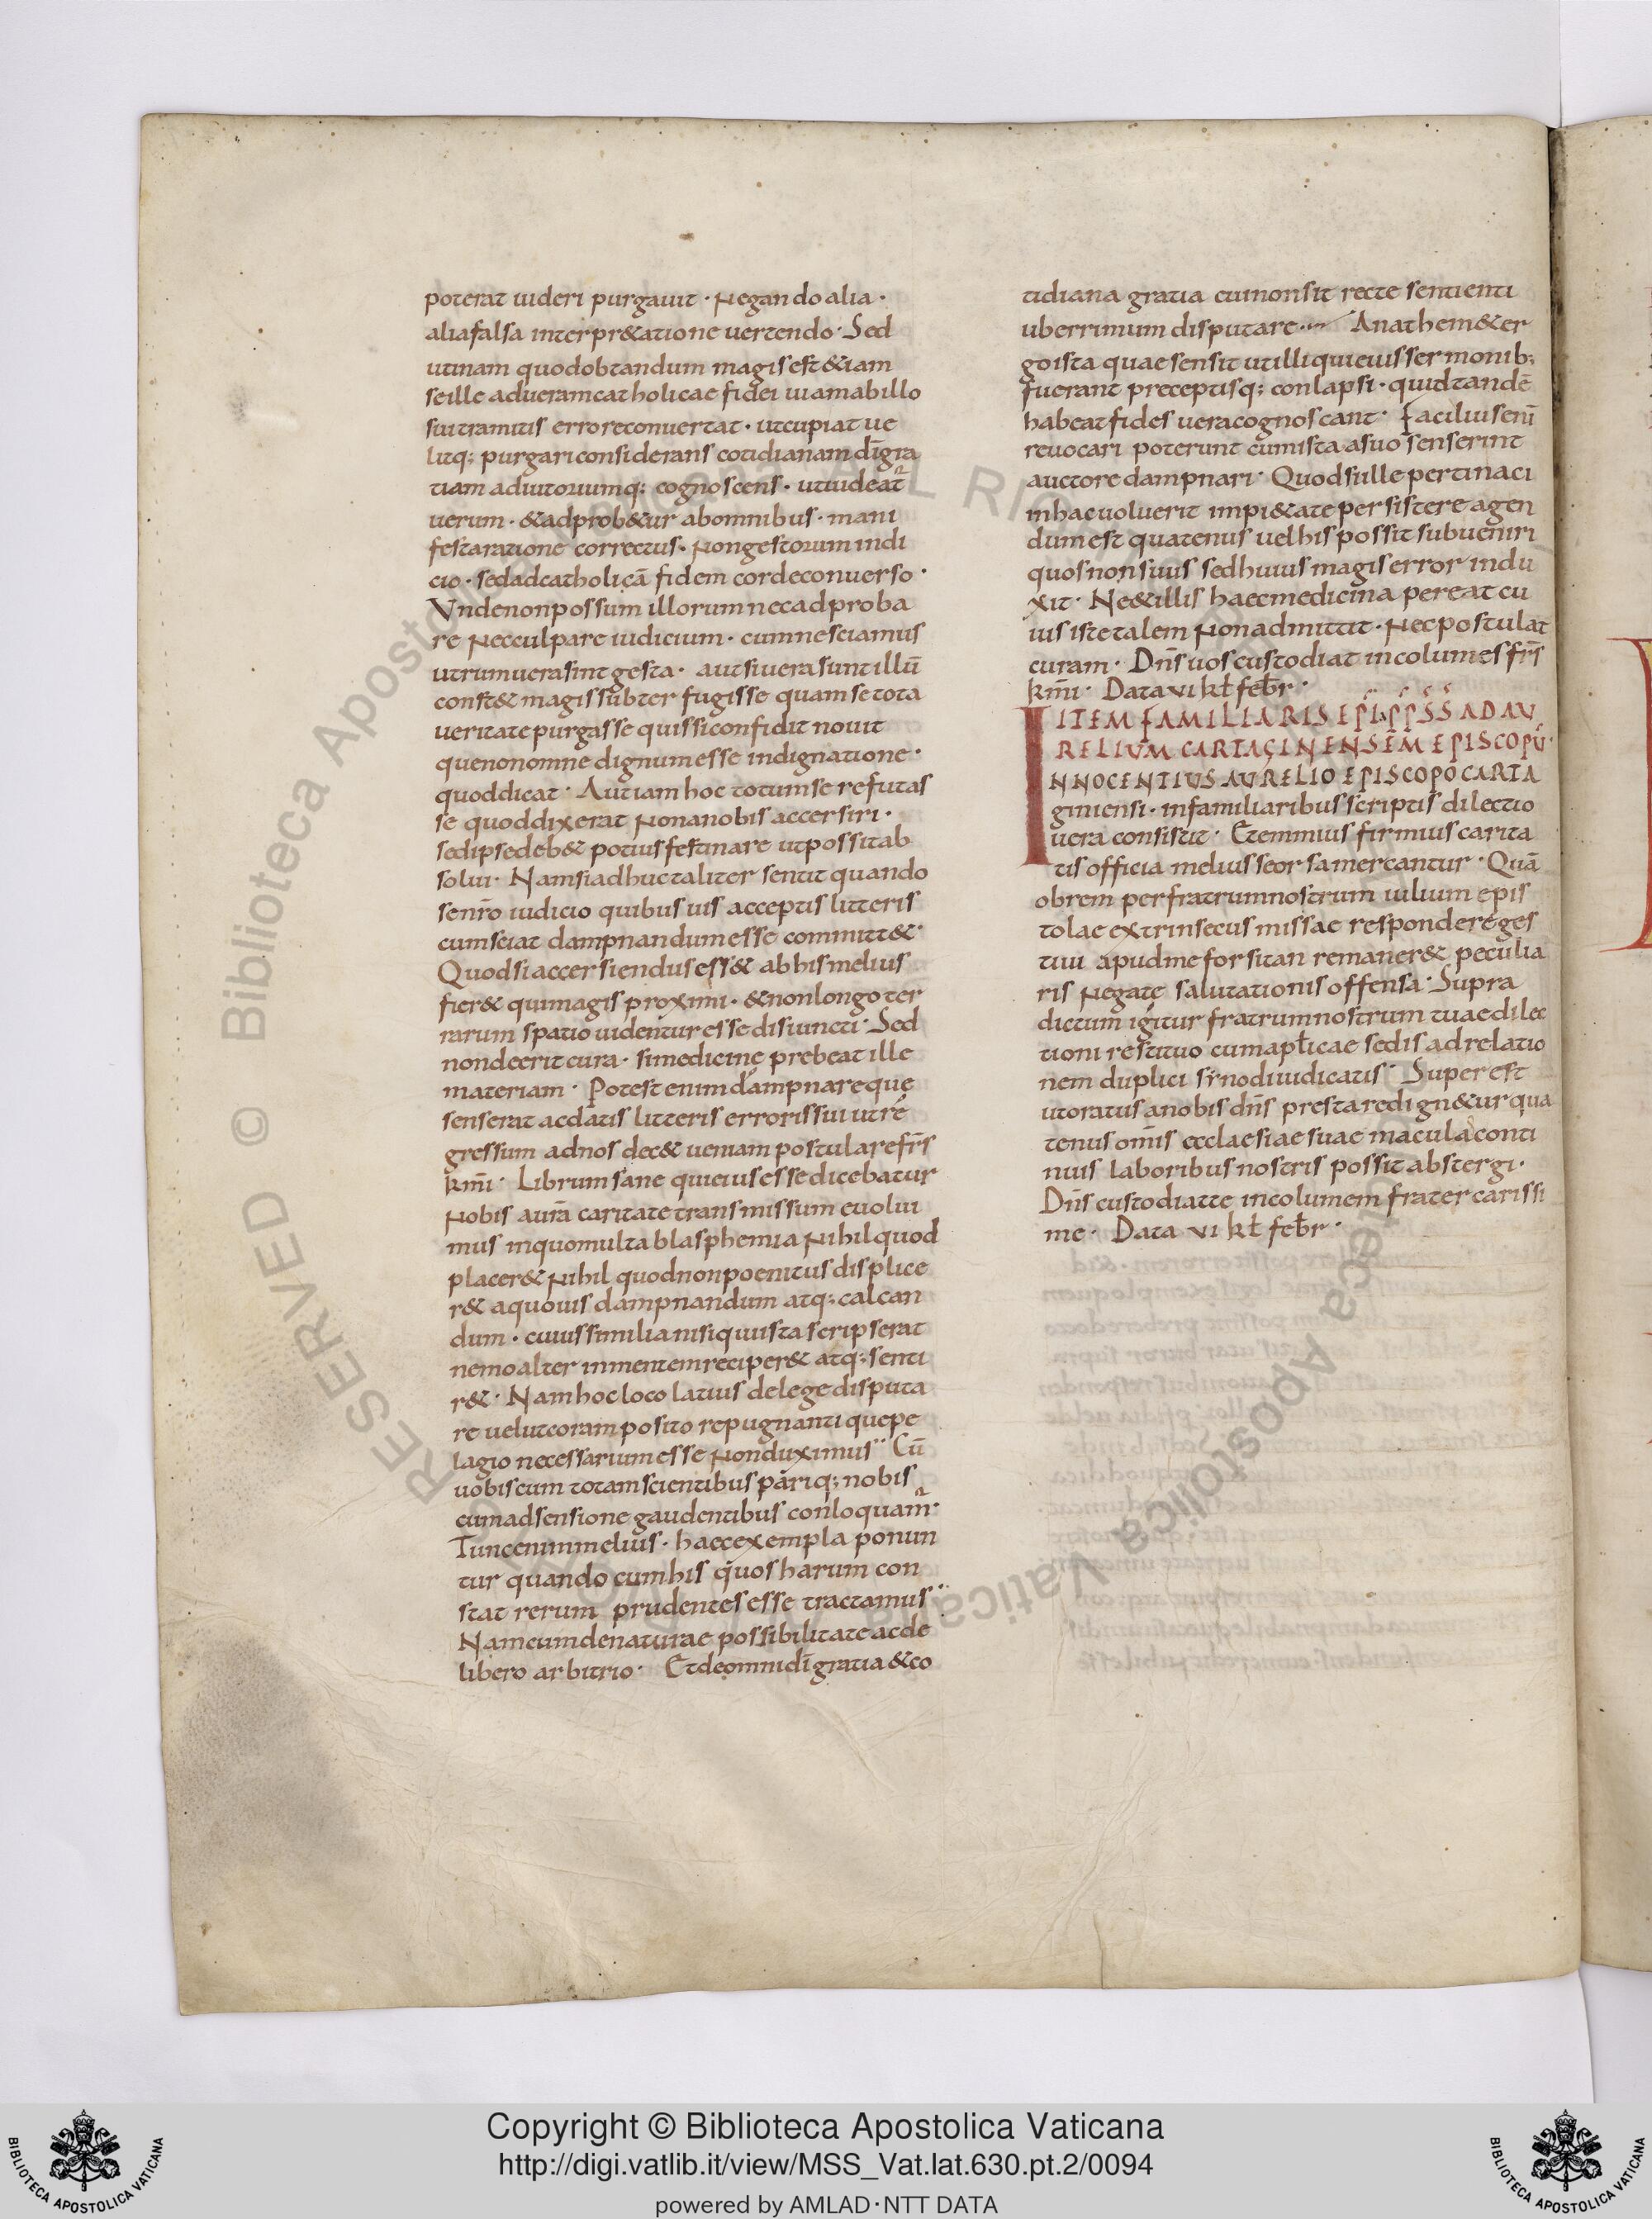 poterat uideri purgauit · Negando alia ·
alia falsa interpr&atione uertendo · Sed
utinam quod obtandum magis est &iam
se ille ad ueram catholicae fidei uiam ab illo
sui tramitis errore conuertat · ut cupiat ue
litq; purgari considerans cotidianam dī gra
tiam adiutoriumq; cognoscens · ut uideat᷑
uerum · & adprob&ur ab omnibus · mani
festa ratione correctus · Non gestorum indi
cio · sed ad catholicā fidem corde conuerso ·
Vnde non possum illorum nec adproba
re Nec culpare iudicium · cum nesciamus
utrum uera sint gesta · aut si uera sunt illū
const& magis subter fugisse quam se tota
ueritate purgasse qui si confidit nouit
que non omne dignum esse indignatione ·
quod dicat · Aut iam hoc totum se refutas
se quod dixerat Non a nobis accersiri ·
sed ipse deb& potius festinare ut possit ab
solui · Nam si adhuc taliter sentit quando
se nr̄o iudicio quibus uis acceptis litteris
cum sciat dampnandum esse committ& ·
Quod si accersiendus ess& ab his melius
fier& qui magis proximi · & non longo ter
rarum spatio uidentur esse disiuncti · Sed
non deerit cura · si medicinę prebeat ille
materiam · Potest enim dampnare quę
senserat ac datis litteris erroris sui ut re
gressum ad nos dec& ueniam postulare fr̄s
km̄i · Librum sane qui eius esse dicebatur
Nobis a ur̄a caritate transmissum euolui
mus in quo multa blasphemia Nihil quod
placer& Nihil quod non poenitus displice
r& a quouis dampnandum atq; calcan
dum · cuius similia nisi qui ista scripserat
nemo alter in mentem reciper& atq; senti
r& · Nam hoc loco latius de lege disputa
re uelut coram posito repugnanti que pe
lagio necessarium esse Non duximus ·· Cū
uobiscum totam scientibus pariq; nobis
cum adsensione gaudentibus conloquam᷑ ·
Tunc enim melius · haec exempla ponun
tur quando cum his quos harum con
stat rerum prudentes esse tractamus ··
Nam cum de naturae possibilitate ac de
libero arbitrio · Et de omni dī gratia & co
tidiana gratia cui non sit recte sentienti
uberrimum disputare ·· Anathem& er
go ista quae sensit ut illi qui eius sermonib;
fuerant preceptisq; conlapsi · quid tandē
habeat fides uera cognoscant · Facilius enī
reuocari poterunt cum ista a suo senserint
auctore dampnari · Quod si ille pertinaci
in hac uoluerit impi&ate persistere agen
dum est quatenus uel his possit subueniri
quos non suus sed huius magis error indu
xit · Ne & illis haec medicina pereat cu
ius iste talem Non admittit · Nec postulat
curam · Dn̄s uos custodiat incolumes fr̄s
km̄i · Data vi kł febr̄ ·
ITEM FAMILIARIS EPI PPSS AD AV
RELIVM CARTAGINENSEM EPISCOPŪ ·
INNOCENTIUS AURELIO EPISCOPO CARTA
giniensi · in familiaribus scriptis dilectio
uera consistit · Et emmius firmius carita
tis officia melius seorsa mercantur · Quā
obrem per fratrum nostrum iulium epis
tolae extrinsecus missae respondere ges
tiui apud me forsitan remaner& peculia
ris Negate salutationis offensa · Supra
dictum igitur fratrum nostrum tuae dilec
tioni restituo cum apłicae sedis ad relatio
nem duplici sinodi iudicatis · Super est
ut oratus a nobis dn̄s prestare dign&ur qua
tenus om̄s ecclaesiae suae macula conti
nuis laboribus nostris possit abstergi ·
Dn̄s custodiat te incolumem frater carissi
me · Data vi kł febr̄ ·
© Biblioteca Apostolica Vaticana
RESERVED
Copyright © Biblioteca Apostolica Vaticana
http://digi.vatlib.it/view/MSS_Vat.lat.630.pt.2/0094
powered by AMLAD·NTT DATA
BIBLIOTECA APOSTOLICA VATICANA
BIBLIOTECA APOSTOLICA VATICANA